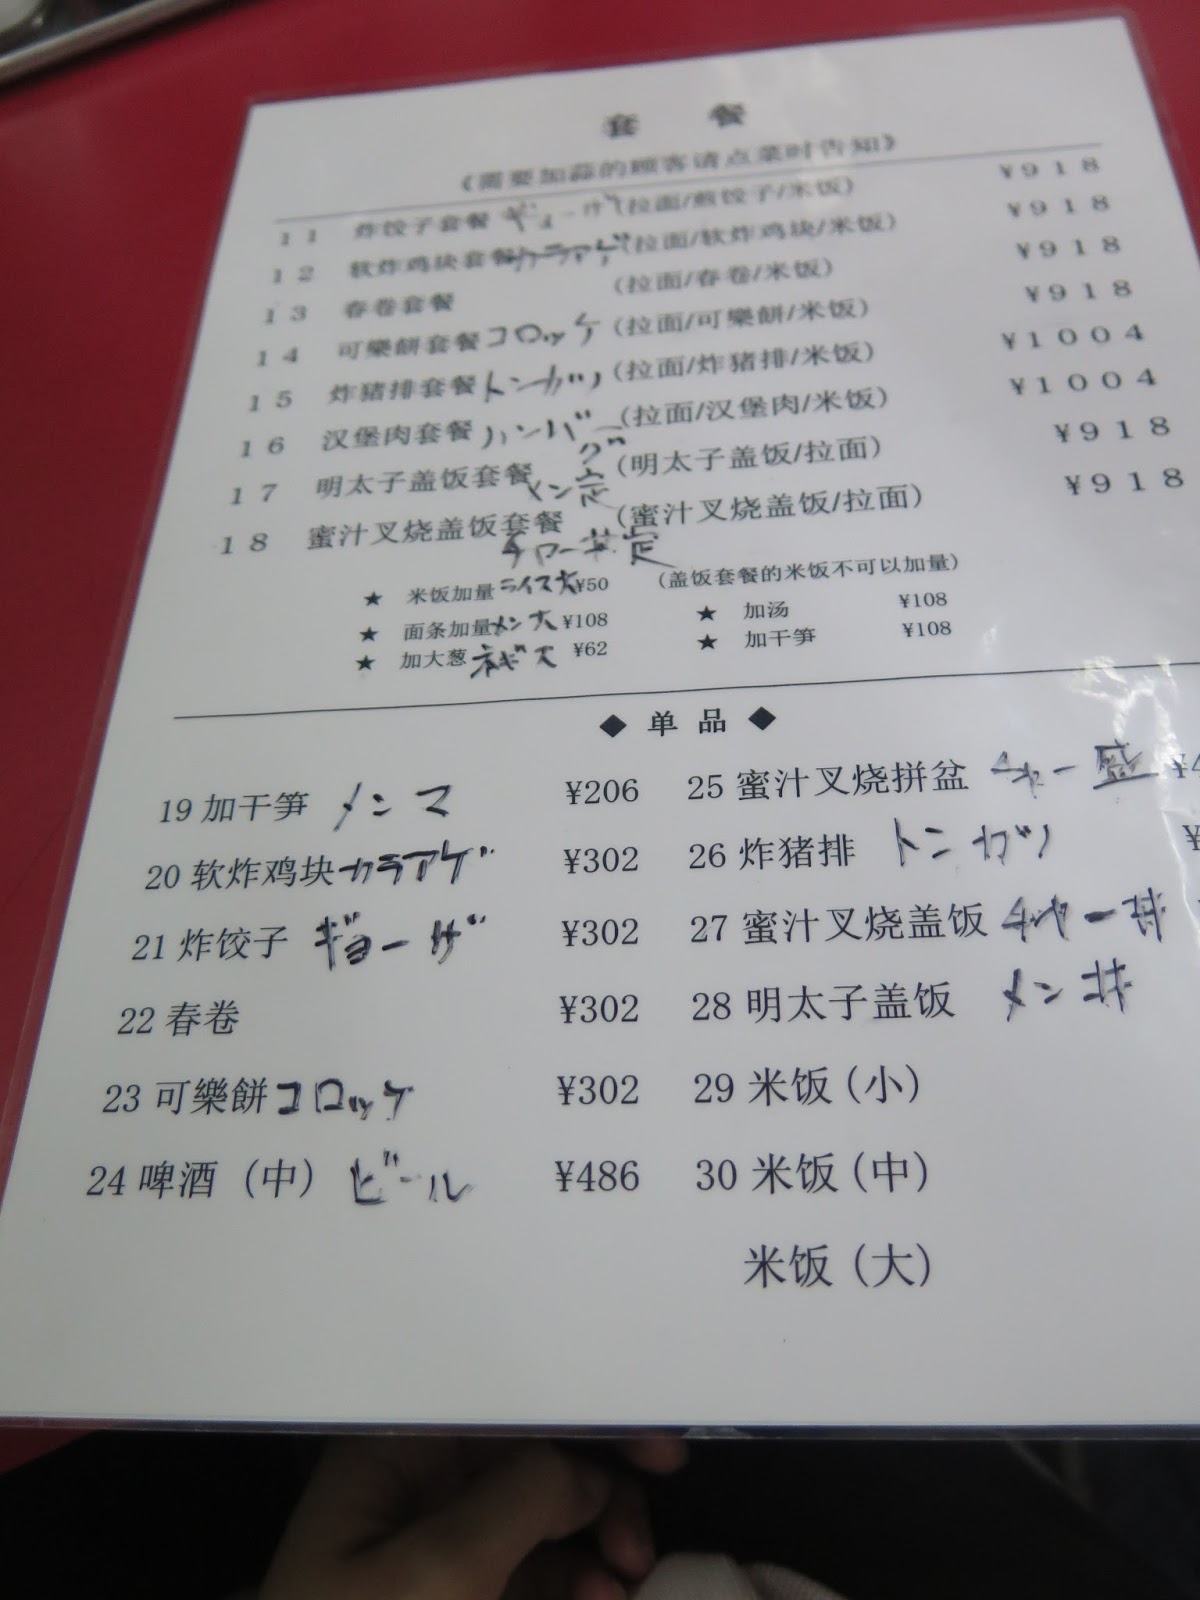 套 餐
《需要加蒜的顾客请点菜时告知》
11 炸饺子套餐 ギョーザ (拉面/煎饺子/米饭) ¥918
12 软炸鸡块套餐 カラアゲ (拉面/软炸鸡块/米饭) ¥918
13 春卷套餐 (拉面/春卷/米饭) ¥918
14 可樂餅套餐 コロッケ (拉面/可樂餅/米饭) ¥918
15 炸猪排套餐 トンカツ (拉面/炸猪排/米饭) ¥1004
16 汉堡肉套餐 ハンバーグ (拉面/汉堡肉/米饭) ¥1004
17 明太子盖饭套餐 メン定 (明太子盖饭/拉面) ¥918
18 蜜汁叉烧盖饭套餐 (蜜汁叉烧盖饭/拉面) ¥918
★ 米饭加量 ライス大 ¥50 (盖饭套餐的米饭不可以加量)
★ 面条加量 メン大 ¥108 ★ 加汤 ¥108
★ 加大葱 ネギ大 ¥62 ★ 加干笋 ¥108
◆ 单 品 ◆
19 加干笋 メンマ ¥206
20 软炸鸡块 カラアゲ ¥302
21 炸饺子 ギョーザ ¥302
22 春卷 ¥302
23 可樂餅 コロッケ ¥302
24 啤酒 (中) ビール ¥486
25 蜜汁叉烧拼盆 チャー盛 ¥4
26 炸猪排 トンカツ ¥
27 蜜汁叉烧盖饭 チャー丼
28 明太子盖饭 メン丼
29 米饭 (小)
30 米饭 (中)
米饭 (大)